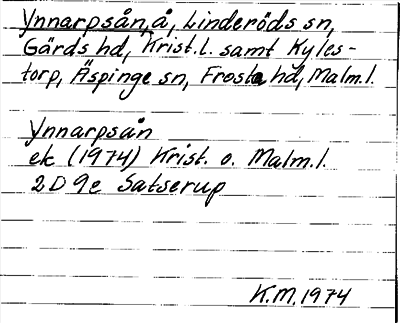 Ynnarpsån, å, Linderöds sn,
Gärds hd, Krist.l. samt Kyles-
torp, Äspinge sn, Frosta hd, Malm.l.
Ynnarpsån
ek (1974) Krist. o. Malm.l.
2D9e Satserup
K.M. 1974